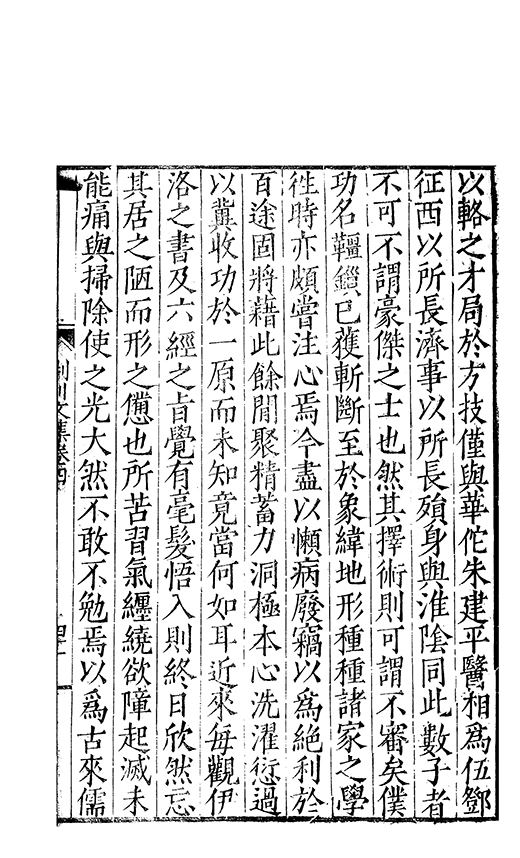 以輅之才局於方技僅與華佗朱建平醫相爲伍鄧
征西以所長濟事以所長殞身與淮陰同此數子者
不可不謂豪傑之士也然其擇術則可謂不審矣僕
功名韁鎖已獲斬斷至於象緯地形種種諸家之學
徃時亦頗嘗注心焉今盡以懶病廢竊以爲絶利於
百途固將藉此餘閒聚精蓄力洞極本心洗濯愆過
以冀收功於一原而未知竟當何如耳近來每觀伊
洛之書及六經之旨覺有毫髮悟入則終日欣然忘
其居之陋而形之憊也所苦習氣纒繞欲障起滅未
能痛與掃除使之光大然不敢不勉焉以爲古來儒
荆川文集卷四